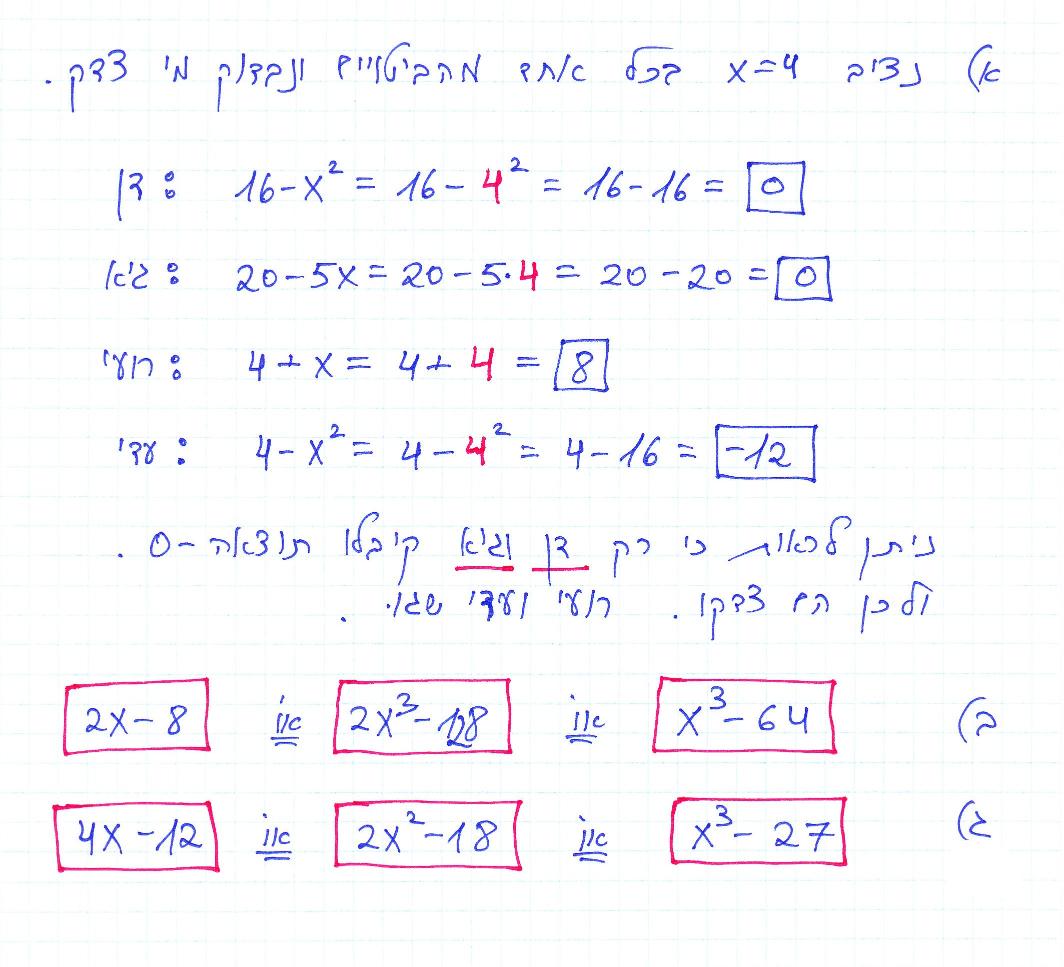 א) נציב x=4 בכל אחד מהביטויים ונבדוק מי צדק.
דן: 16-x² = 16-4² = 16-16 = 0
גיא: 20-5x = 20-5·4 = 20-20 = 0
רועי: 4+x = 4+4 = 8
עדי: 4-x² = 4-4² = 4-16 = -12
ניתן לראות כי רק דן וגיא קיבלו תוצאה-0.
ולכן הם צדקו. רועי ועדי שגו.
ב) x³-64 או 2x³-128 או 2x-8
ג) x³-27 או 2x²-18 או 4x-12